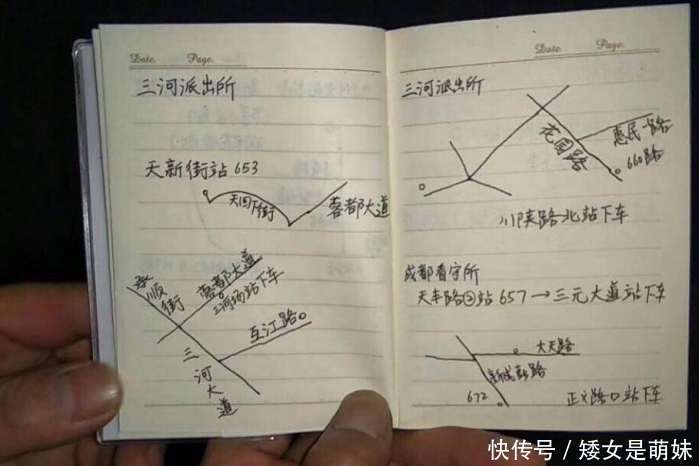 Date. Page.
三河派出所
天新街站 653
天回下街
蓉都大道
承顺街
蓉都大道
三河场站下车
互江路
三河大道
Date. Page.
三河派出所
花园路
惠民路
660路
川陕路北站下车
成都看守所
天丰路口站 657→三元大道站下车
大天路
新成彭路
672
正义路口站下车
快传号 / 矮女是萌妹